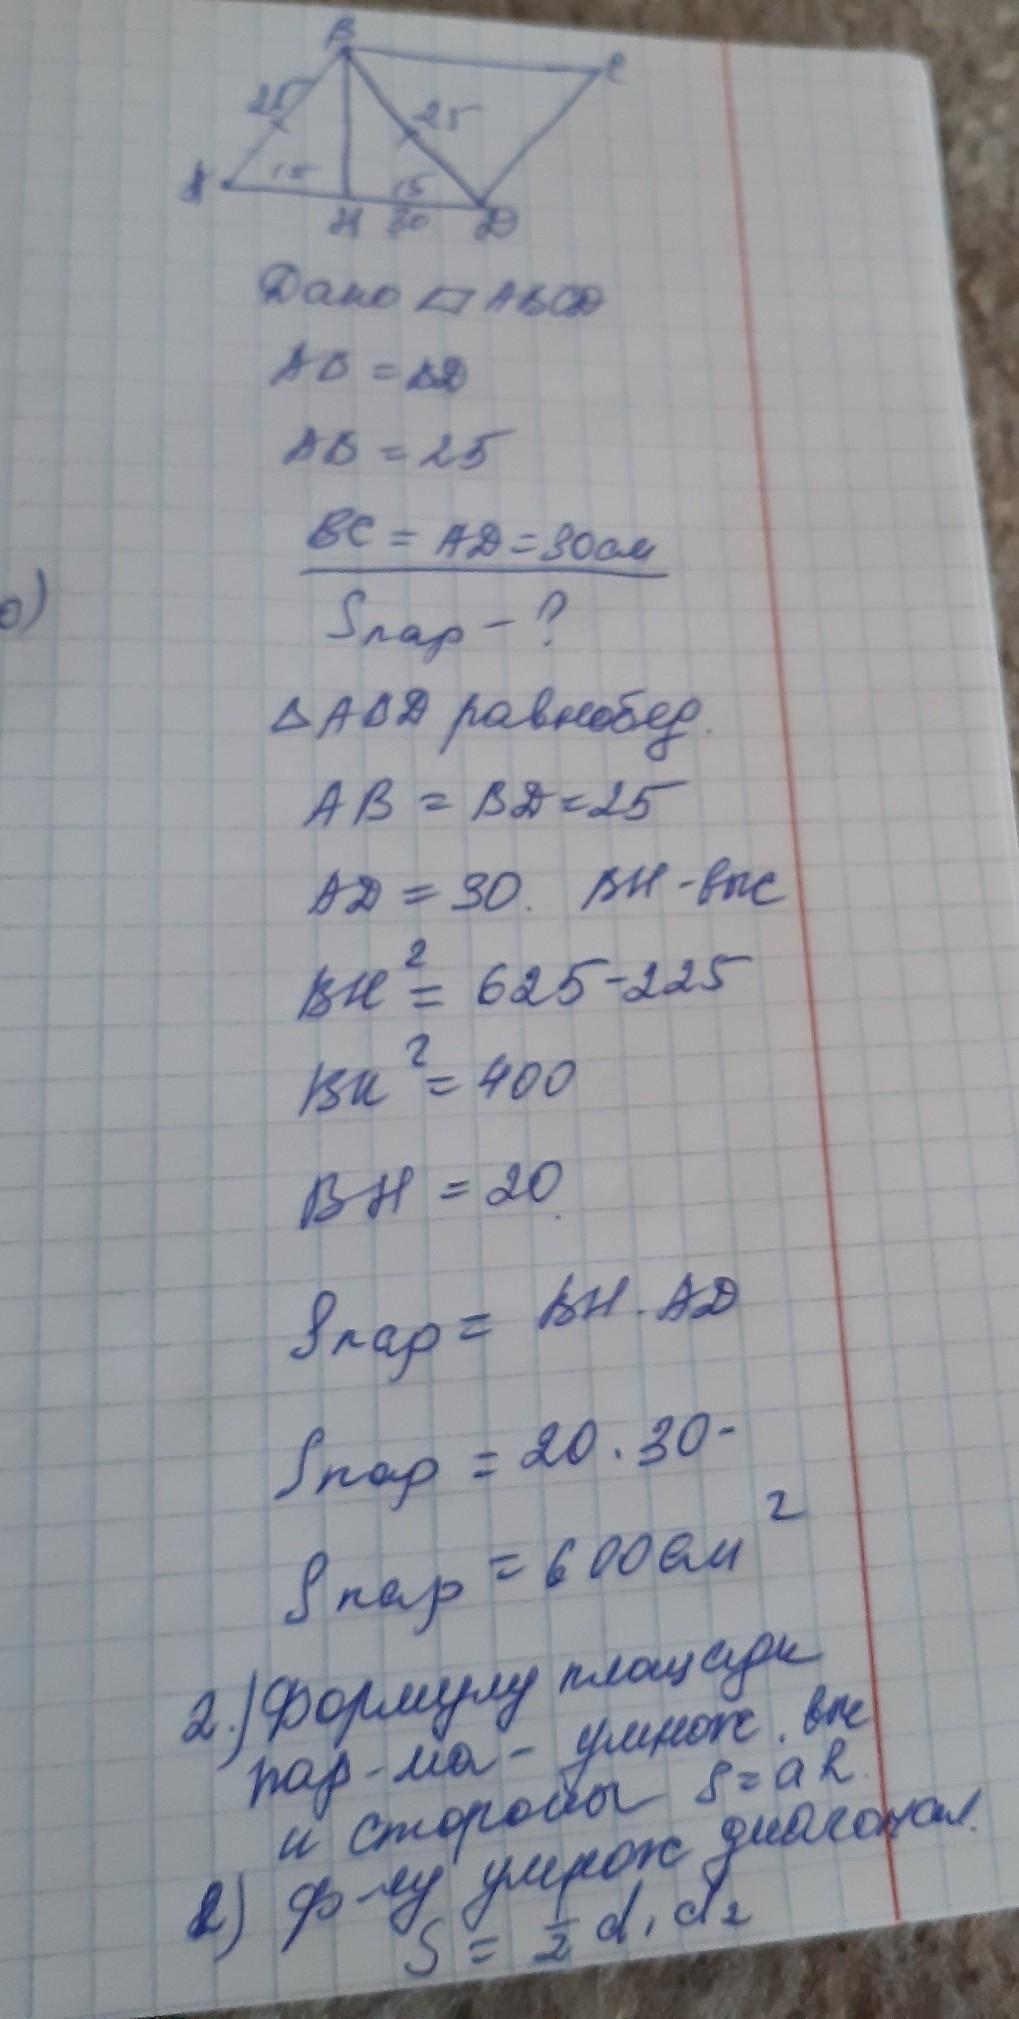 B
C
25
25
15
15
A
H
30
D
Дано ▱ ABCD
AB = BD
AB = 25
BC = AD = 30см
Sпар - ?
о)
Δ ABD равнобед.
AB = BD = 25
AD = 30. BH - выс
BH² = 625 - 225
BH² = 400
BH = 20
Sпар = BH · AD
Sпар = 20 · 30 -
Sпар = 600см²
2.) Формулу площади
пар-ма - умнож. выс
и стороны S = ah.
2) Ф-лу умнож диагонал.
S = 1/2 d₁ d₂